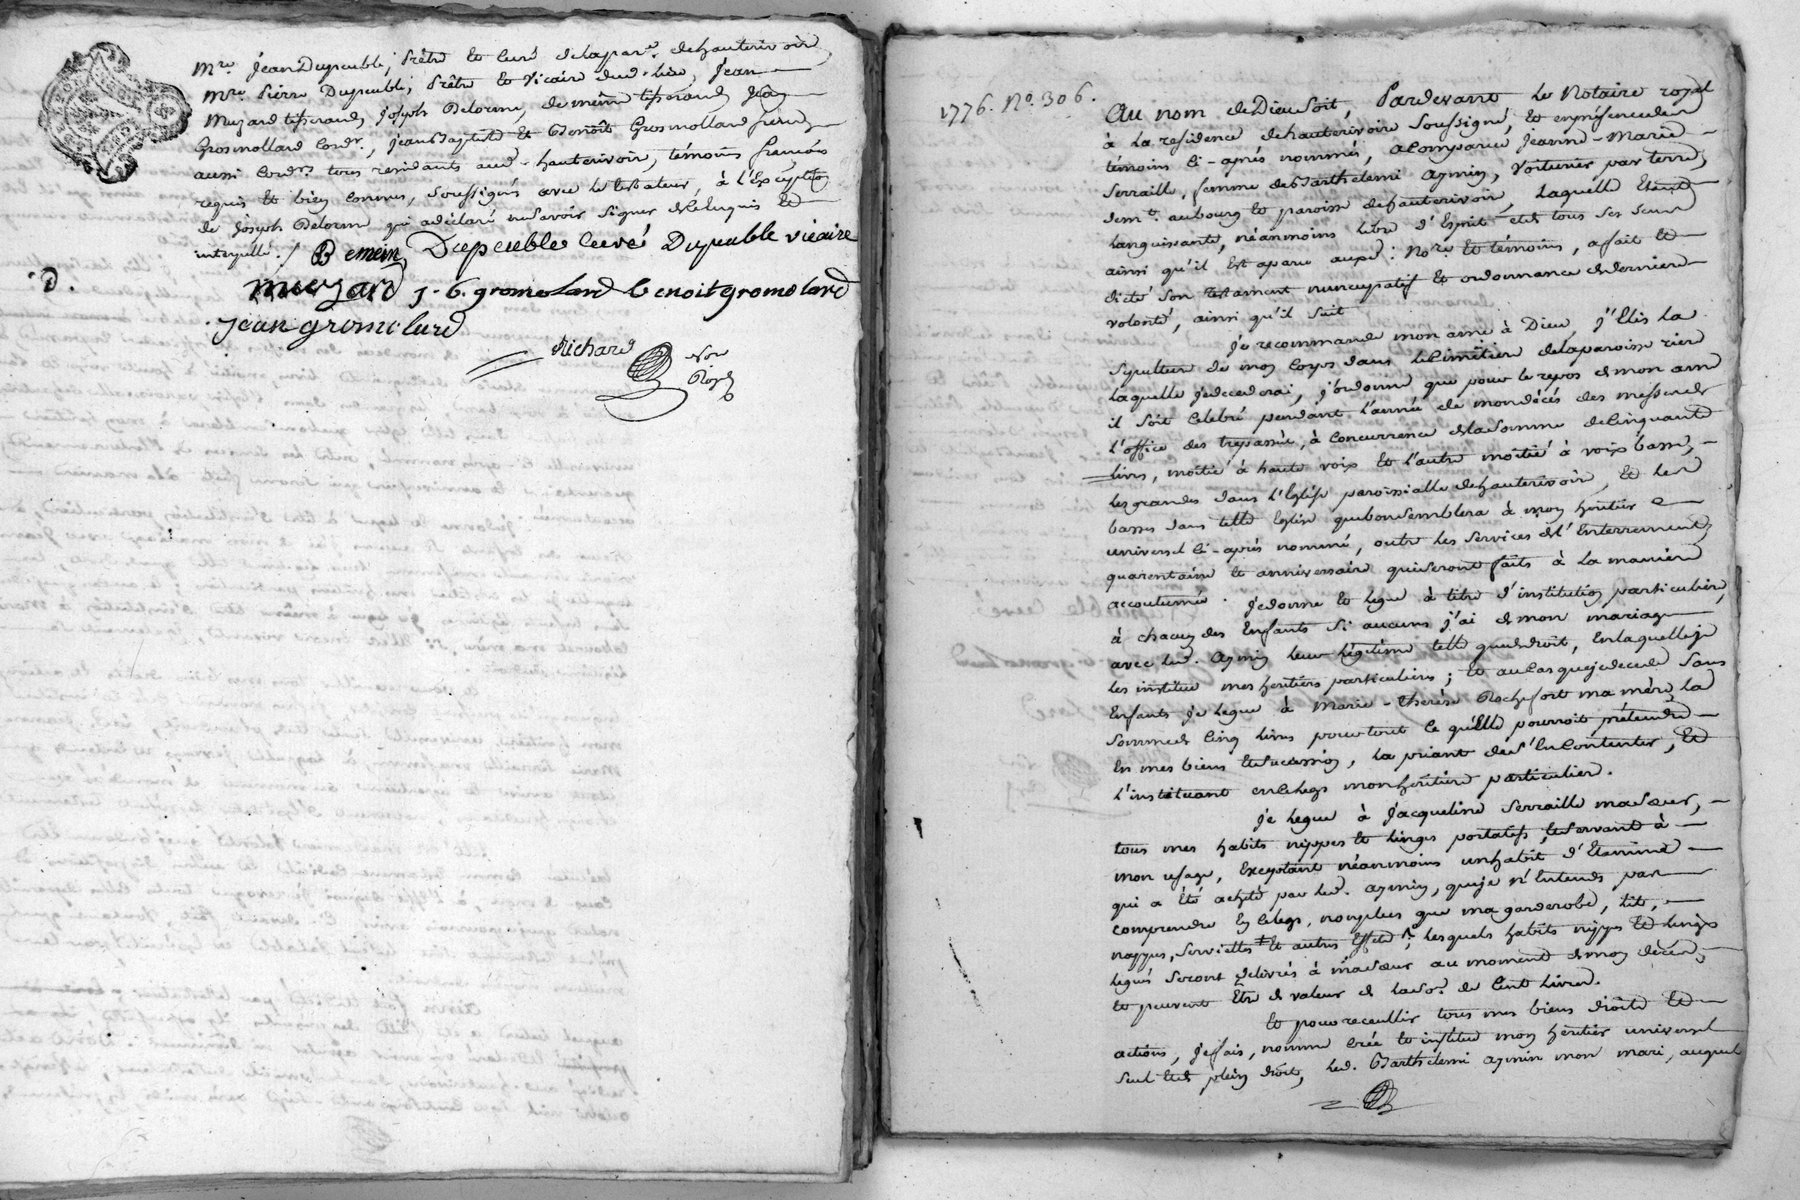 Mre. Jean Dupeuble, Prêtre et Curé delapare. dehauterivoire,
Mre. Pierre Dupeuble, Prêtre et Vicaire dud. lieu, Jean
Muzard tisserand, joseph Delorme, de même tisserand, Jean
Grosmollard Cordr., jean Baptiste Et Benoît Grosmollard freres
aussi Cordrs tous residants aud. hauterivoire, témoins françois
requis et bien connus, soussignés avec le testateur, à l'Exception
de joseph Delorme qui adéclaré nesavoir signer deLenquis et
interpellé. /
Bemein Dupeuble curé Dupeuble vicaire
D.
muzard j. b. gromolard benoit gromolard
jean gromolard
Richard
Nore
Royal
1776. No. 306.
Au nom deDieu soit, Pardevant Le Notaire royal
à La residence dehauterivoire soussigné, et enprésencede
témoins Ci-après nommés, aComparue Jeanne-Marie
Serraille, femme deBarthelemi aymin, Voiturier par terre,
demt. aubourg et paroisse dehauterivoire, Laquelle Etant
Languissante, néanmoins libre d'Esprit etde tous ses sens
ainsi qu'il Est aparu auxd: Nore et témoins, afait et
dicté son testament nuncupatif et ordonnance dedernière
volonté, ainsi qu'il suit
Je recommande mon ame à Dieu, j'Elis La
sepulture de mon Corps dans leCimetière delaparoisse rière
Laquelle jedecederai, j'ordonne que pour le repos demon ame
il soit Celebré pendant l'année de mondécès des messesde
l'office des trepassés, à Concurrence delasomme deCinquante
livres, moitié à haute voix et l'autre moitié à voix basse,
les grandes dans l'Eglise paroissialle dehauterivoire, et les
basses dans telle Eglise quebonsemblera à mon héritier
universel Ci-après nommé, outre les services del'Enterrement,
quarentaine et anniversaire quiseront faits à La maniere
accoutumée. jedonne et legue à titre d'institution particuliere,
à chacun des Enfants si aucuns j'ai demon mariage
avec led. aymin leur légitime telle quededroit, Enlaquelleje
les institue mes héritiers particuliers; et aucas quejedecede sans
Enfants je legue à Marie-Therèse Rochefort ma mère, la
sommede Cinq livres pourtout Ce qu'Elle pourroit prétendre
En mes biens Etsuccession, La priant des'EnContenter, et
L'instituant enCelegs monheritiere particulier.
Je legue à Jacqueline Serraille masœur,
tous mes habits nippes et Linges portatifs, et servant à
mon usage, Exceptant néanmoins unhabit d'Etamine
qui a été acheté par led. aymin, queje n'Entends pas
comprendre En Celegs, nonplus que magarderobe, lit,
nappes, serviettes et autres Effets; lesquels habits nippes et linges
legués seront delivrés à masœur au moment demon decès,
et peuvent Etre de valeur de laSoe. de Cent Livres.
et pour receuillir tous mes biens droits et
actions, jefais, nomme Crée et institue mon heritier universel
seul etde plein droit, led. Barthelemi aymin mon mari, auquel